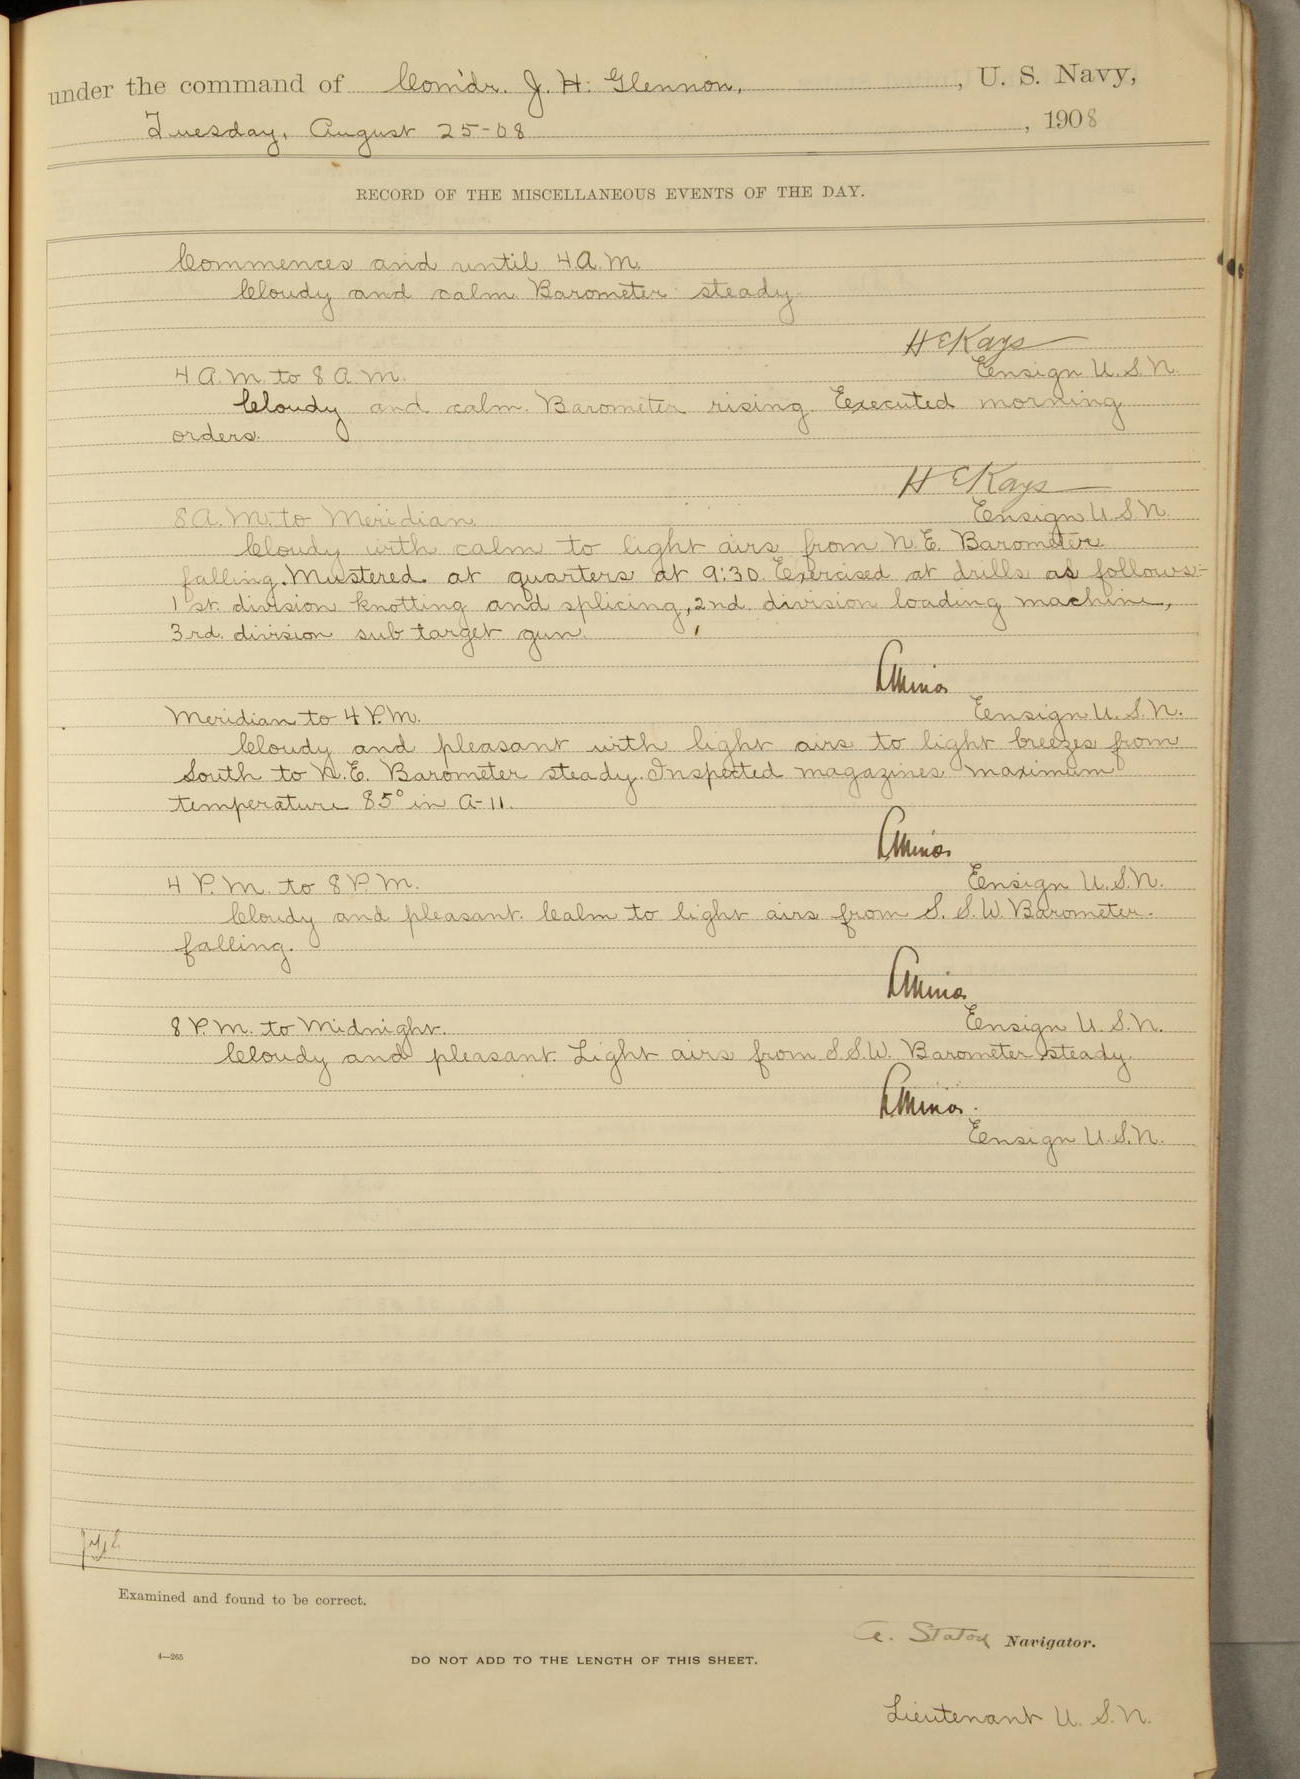 under the command of Com'dr. J. H. Glennon, , U. S. Navy,
Tuesday, August 25-08 , 1908
RECORD OF THE MISCELLANEOUS EVENTS OF THE DAY.
Commences and until 4 A.M.
Cloudy and calm. Barometer steady.
H E Kays
4 A.M. to 8 A.M. Ensign U.S.N.
Cloudy and calm. Barometer rising. Executed morning
orders.
H E Kays
8 A.M. to Meridian Ensign U.S.N.
Cloudy with calm to light airs from N.E. Barometer
falling. Mustered at quarters at 9:30. Exercised at drills as follows:-
1st. division knotting and splicing, 2nd. division loading machine,
3rd. division sub target gun.
Meridian to 4 P.M. Ensign U.S.N.
Cloudy and pleasant with light airs to light breezes from
South to N.E. Barometer steady. Inspected magazines maximum
temperature 85° in A-11.
4 P.M. to 8 P.M. Ensign U.S.N.
Cloudy and pleasant. Calm to light airs from S. S.W. Barometer.
falling.
8 P.M. to Midnight. Ensign U.S.N.
Cloudy and pleasant. Light airs from S.S.W. Barometer steady.
Ensign U.S.N.
Examined and found to be correct.
A. Staton Navigator.
4—265
DO NOT ADD TO THE LENGTH OF THIS SHEET.
Lieutenant U. S. N.